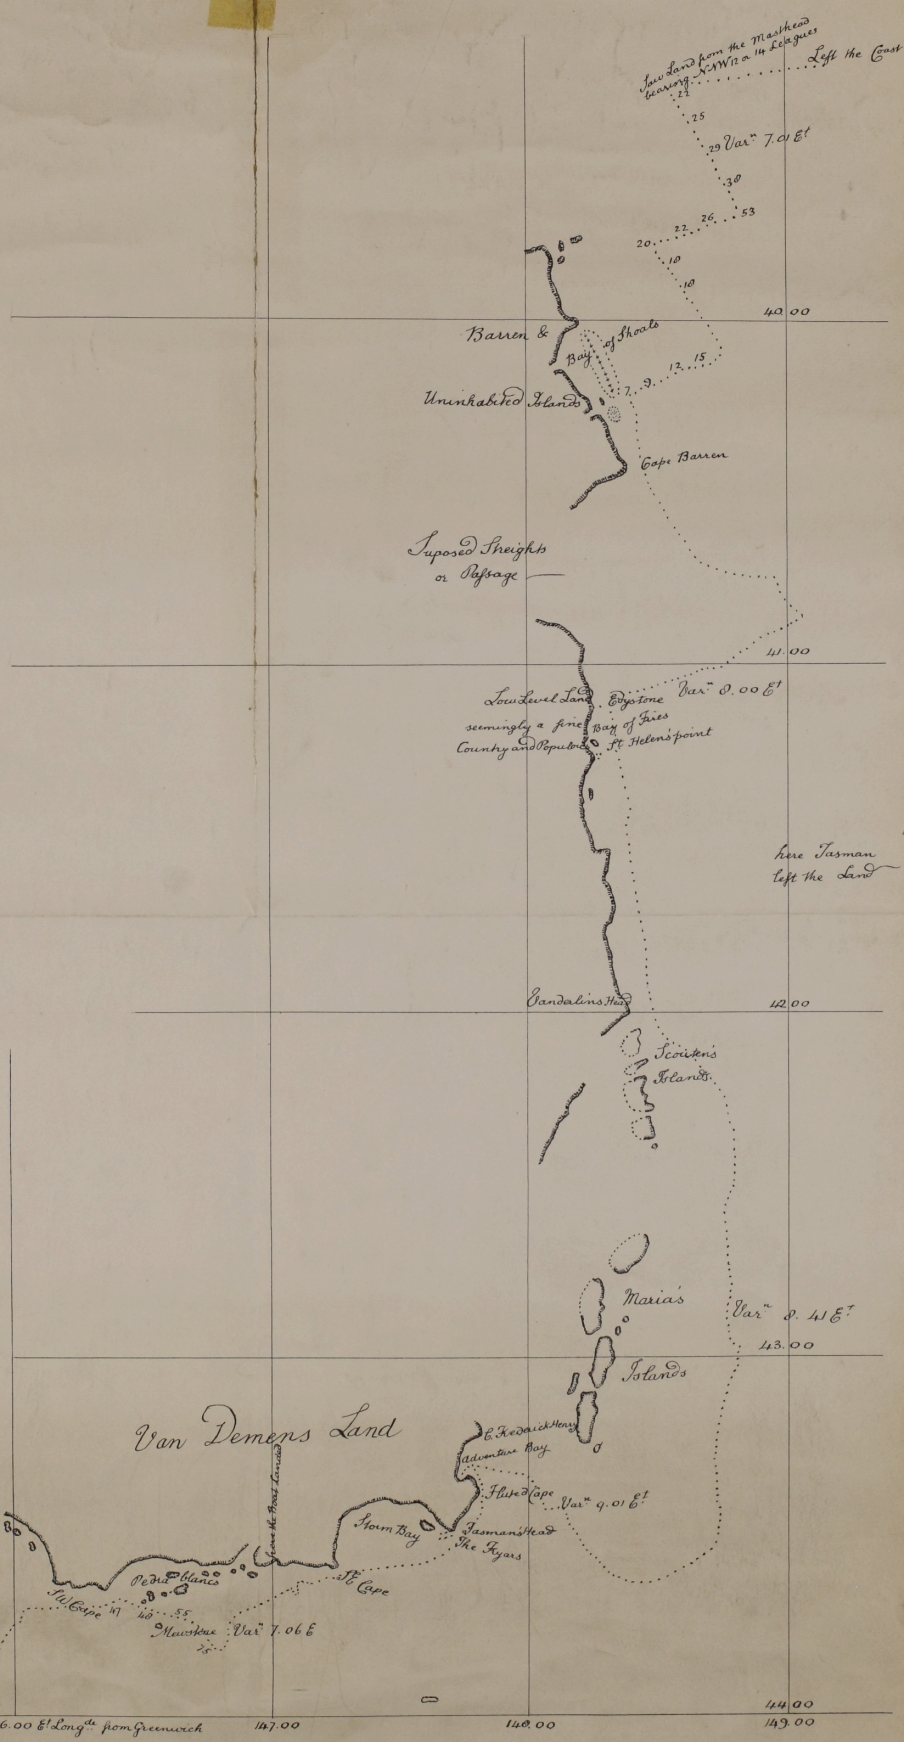 Saw Land from the Masthead
bearing NNW 12 or 14 Leagues
Left the Coast
22
25
29 Varn 7.01 Et
38
53
26
22
20
18
18
40.00
Barren &
Bay of Shoals
15
12
9
7
Uninhabited Islands
Cape Barren
Suposed Streights
or Passage
41.00
Varn 8.00 Et
Low Level Land
Edystone
seemingly a fine
Bay of Fires
Country and Populous
St Helen's point
here Tasman
left the Land
Vandalins Head
42.00
Scouten's
Islands
Maria's
Varn 8.41 Et
43.00
Islands
Van Demens Land
C. Frederick Henry
Adventure Bay
Fluted Cape
Varn 9.01 Et
Storm Bay
Tasman's Head
The Fryars
here the Boat Landed
Pedra blanco
So Cape
SW Cape
47
48
55
Mewstone
Varn 7.06 E
75
44.00
6.00 Et Longde from Greenwich
147.00
148.00
149.00